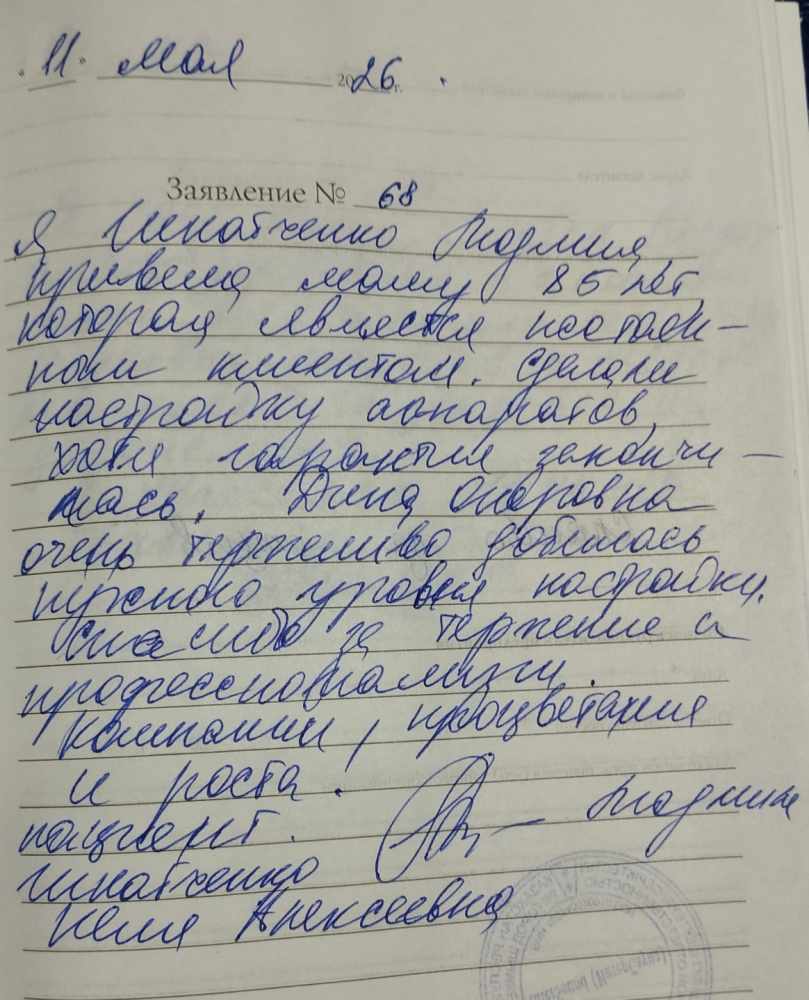 "11" мая 2026 г.
Заявление № 68
Я Людмила,
привела маму 85 лет,
которая является постоян-
ным клиентом. Сделали
настройку аппаратов,
хотя гарантия закончи-
лась. Дина
очень терпеливо добилась
нужного уровня настройки.
Спасибо за терпение и
профессионализм.
Компании, процветания
и роста.
пациент. Людмила
Алексеевна